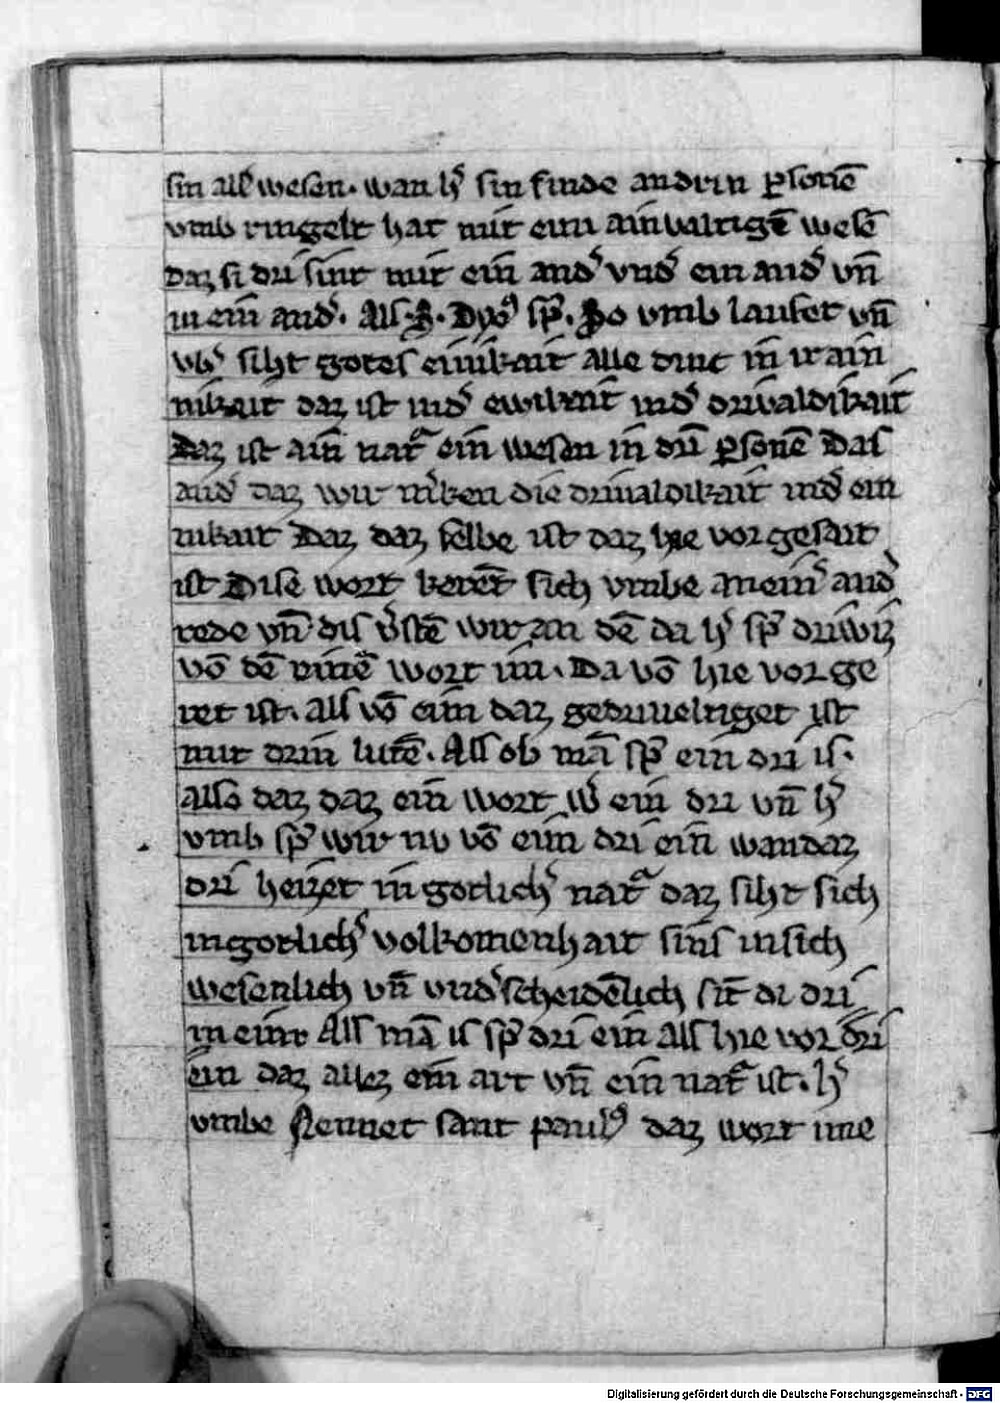 sin als wesen. wan h᷎ sin sinde andrin ꝑsonē
vmb ringelt hat mit eim ainvaltigē wesē
daz si dri sint mit ein and᷎ vnd᷎ ein and᷎ vn̄
in ein and᷎. Als .S. Dyoꝰ sp᷎. So vmb laufet vn̄
vb᷎ siht gotes einikait alle dinc in ir ain
nikait daz ist ind᷎ ewikait ind᷎ drivaldikait
Daz ist ain nat᷎ ein wesen in drin ꝑsonē Das
and᷎ daz wir m᷎ken die drivaldikait ind᷎ ein
nikait Daz daz selbe ist daz hie vor gesait
ist Dise wort keret sich vmbe an ein᷎ and᷎
rede vn̄ dis v᷎stē wir an dē da h᷎ sp᷎ driwiz
vō dē wort im. Da vō hie vor ge
ret ist. als vō eim daz gedriveltiget ist
mit drin lutē. Als ob mā sp᷎ ein dri is.
also daz daz ein wort w᷎ ein dri vn̄ h᷎
vmb sp᷎ wir nv vō eim dri ein wan daz
dri heizet in gotlich᷎ nat᷎ daz siht sich
in gotlich᷎ volkomenhait sins in sich
wesenlich vn̄ vnd᷎scheidēlich sit di dri
in eim Als mā is sp᷎ dri ein als hie vor dri
ein daz allez ein art vn̄ ein nat᷎ ist. h᷎
vmbe Nennet sant paulꝰ daz wort ime
Digitalisierung gefördert durch die Deutsche Forschungsgemeinschaft - DFG